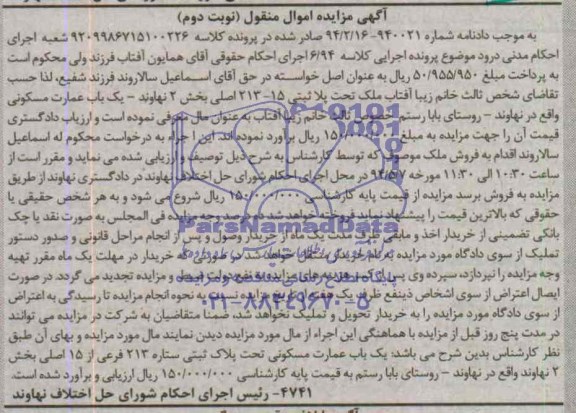 آگهی مزایده اموال منقول (نوبت دوم)
به موجب دادنامه شماره ۹۴۰۰۲۱-۹۴/۲/۱۶ صادر شده در پرونده کلاسه ۹۲۰۹۹۸۶۷۱۵۱۰۰۲۲۶ شعبه اجرای
احکام مدنی درود موضوع پرونده اجرایی کلاسه ۶/۹۴ اجرای احکام حقوقی آقای همایون آفتاب فرزند ولی محکوم است
به پرداخت مبلغ ۵۰/۹۵۵/۹۵۰ ریال به عنوان اصل خواسته در حق آقای اسماعیل سالاروند فرزند شفیع، لذا حسب
تقاضای شخص ثالث خانم زیبا آفتاب ملک تحت پلا ثبتی ۱۵-۲۱۳ اصلی بخش ۲ نهاوند - یک باب عمارت مسکونی
واقع در نهاوند - روستای بابا رستم خصوص ثالث خانم زیبا آفتاب به عنوان مال معرفی نموده است و ارزیاب دادگستری
قیمت آن را جهت مزایده به مبلغ ریال برآورد نموده‌اند. این اجراء به درخواست محکوم له اسماعیل
سالاروند اقدام به فروش ملک موصوف که توسط کارشناس به شرح ذیل توصیف و ارزیابی شده می نماید و مقرر است از
ساعت ۱۰:۳۰ الی ۱۱:۳۰ مورخه در محل اجرای احکام شورای حل اختلاف نهاوند در دادگستری نهاوند از طریق
مزایده به فروش برسد مزایده از قیمت پایه کارشناسی ۱۵۰/۰۰۰/۰۰۰ ریال شروع می شود و به هر شخص حقیقی یا
حقوقی که بالاترین قیمت را پیشنهاد نماید فروخته خواهد شد ده درصد وجه مزایده فی المجلس به صورت نقد یا چک
بانکی تضمینی از خریدار اخذ و مابقی یک ماه از خریدار وصول و پس از انجام مراحل قانونی و صدور دستور
تملیک از سوی دادگاه مورد مزایده به نام خریدار منتقل خواهد شد که خریدار در مهلت یک ماه مقرر تهیه
وجه مزایده را نپردازد، سپرده وی پس از کسر هزینه های مزایده به نفع دولت ضبط و مزایده تجدید می گردد. در صورت
ایصال اعتراض از سوی اشخاص ذینفع ظرف یک نحوه انجام مزایده تا رسیدگی به اعتراض
از سوی دادگاه مورد مزایده را به خریدار تحویل و تملیک نخواهد شد، ضمنا متقاضیان به شرکت در مزایده می توانند
در مدت پنج روز قبل از مزایده با هماهنگی این اجراء از مال مورد مزایده دیدن نمایند مال مورد مزایده و بهای آن طبق
نظر کارشناس بدین شرح می باشد: یک باب عمارت مسکونی تحت پلاک ثبتی ستاره ۲۱۳ فرعی از ۱۵ اصلی بخش
۲ نهاوند واقع در نهاوند - روستای بابا رستم به قیمت پایه کارشناسی ۱۵۰/۰۰۰/۰۰۰ ریال ارزیابی و برآورد شده است.
۴۷۴۱- رئیس اجرای احکام شورای حل اختلاف نهاوند
ParsNamadData
۰۲۱-۸۸۳۴۹۶۷۰-۵